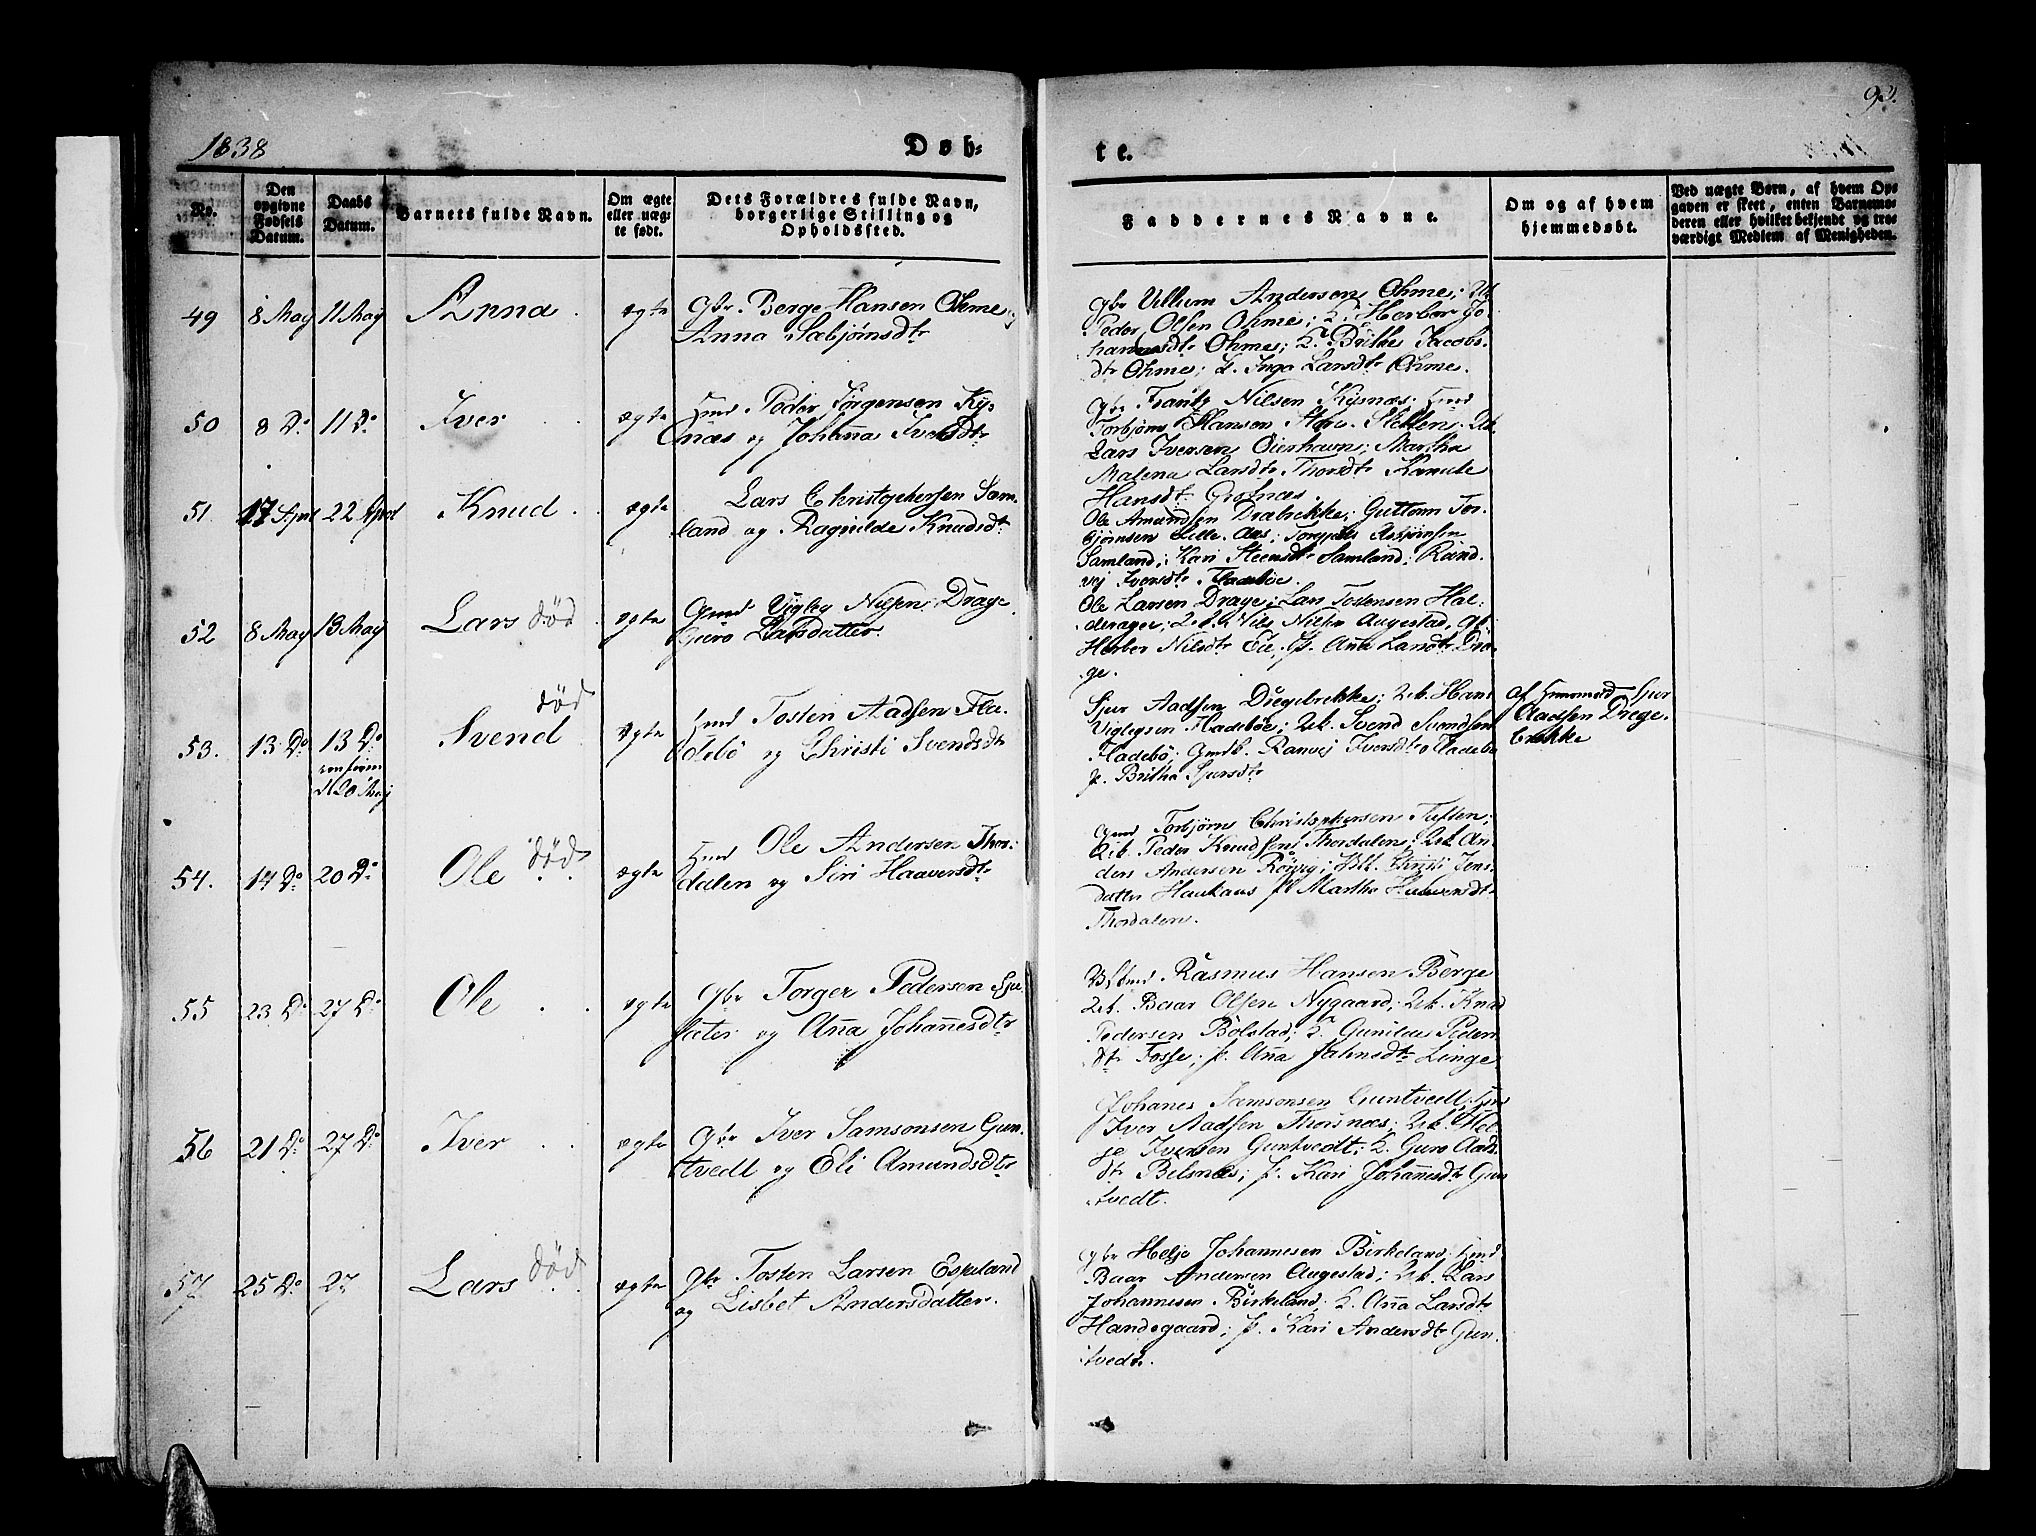 1838
Døb-
te.
93.
No.
Den
opgivne
Fødsels
Datum.
Daabs
Datum.
Barnets fulde Navn.
Om ægte
eller uæg-
te født.
Dets Forældres fulde Navn,
borgerlige Stilling og
Opholdssted.
Faddernes Navne.
Om og af hvem
hjemmedøbt.
Ved uægte Børn, af hvem Op-
gaven er skeet, enten Barnemo-
deren eller hvilket bekjendt og tro-
værdigt Medlem af Menigheden.
49
8 May
11 May
Anna
ægte
Gbr Berge Hansen Ohme,
Anna Sæbjørnsdtr
Gbr Villum Andersen Ohme; Uk
Peder Olsen Ohme; K. Herbor Jo-
hannesdtr Ohme; K. Brithe Jacobs-
dtr Ohme; P. Inga Larsdtr Ohme.
50
8 Do
11 Do
Iver
ægte
Hmd Peder Jørgensen Ky-
næs og Johanna Iversdtr
Gbr Frantz Nilsen Kysnæs; Hmd
Torbjørn Hansen Uk.
Lars Iversen Martha
Malena Larsdtr Thorsdtr
Hansdtr
51
17 April
22 April
Knud
ægte
Lars Christophersen Sam-
land og Ragnilde Knudsdtr
Ole Amundsen Drabrekke; Guttorm Tor-
bjørnsen Lille Aas; Torgils Asbjørnsen
Samland; Kari Steensdtr Samland; Rand-
vej Iversdtr Fladebøe.
52
8 May
13 May
Lars død
ægte
Gmd Vigleg Nilsen Drage
Guro Larsdatter.
Ole Larsen Drage; Lars Tostensen Hal-
derager; Uk. Nils Nilsen Augestad, Gk
Herbor Nilsdtr Eie, P. Anna Larsdtr Dra-
ge.
53.
13 Do
13 Do
confirm
d 20 May
død
Svend
ægte
Hmd Tosten Aadsen Fla-
debø og Christi Svendsdtr
Sjur Aadsen Drægebrekke; Uk. Hans
Viglegsen Fladebøe; Uk. Svend Svendsen
Fladebø; Gmdk. Ranvej Iversdtr Fladebø
P. Britha Sjursdtr
af Huusmand Sjur
Aadsen Drege-
brekke
54.
14 Do
20 Do
Ole død
ægte
Hmd Ole Andersen Thor-
dalen og Siri Haaversdtr
Gmd Torbjørn Christophersen Tuften;
Uk. Peder Knudsen Thordalen; Uk An-
ders Andersen Røyrvig; Christi Jens-
datter Haukaas P. Martha Haaversdtr
Thordalen.
55
23 Do
27 Do
Ole
ægte
Gbr Torger Pedersen Sju-
sæter og Anna Johannesdtr
Rasmus Hansen Berge
Uk. Baar Olsen Nygaard; Uk. Knud
Pedersen Bolstad; K. Gunilda Peders-
dtr Fosse; P. Anna Jahnsdtr Linge
56
21 Do
27 Do
Iver
ægte
Gbr Iver Samsonsen Gun-
tvedt og Eli Amundsdtr
Johanes Samsonsen Guntvedt, Hmd
Iver Aadsen Thorsnæs; Uk. Hel-
ge Iversen Guntvedt; K. Guro Aads-
dtr Belsnæs; P. Kari Johannesdtr Gun
tvedt.
57
25 Do
27
Lars død
ægte
Gbr Tosten Larsen Espeland
og Lisbet Andersdatter.
Gbr Helje Johannesen Birkeland; Hmd
Baar Andersen Augestad; Uk. Lars
Johannesen Birkeland; K. Anna Larsdtr
Handegaard; P. Kari Andersdtr Gun-
tvedt.